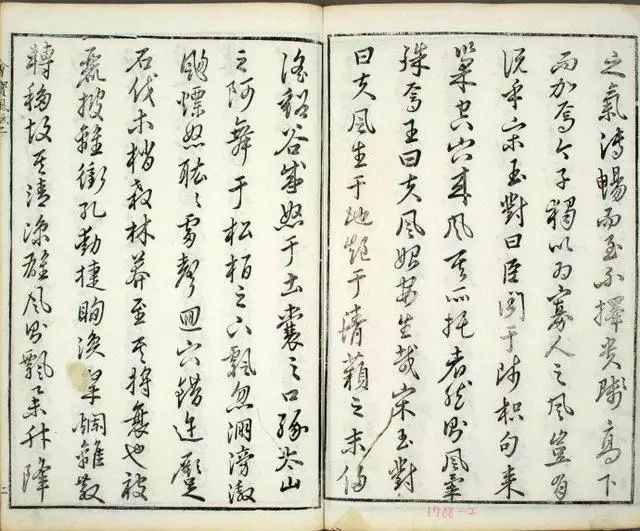 之氣溥暢而至不擇貴賤高下
而加焉今子獨以為寡人之風豈有
説乎宋玉對曰臣聞于師枳句來
巢空穴來風其所托者然則風氣
殊焉王曰夫風始安生哉宋玉對
曰夫風生于地起于青蘋之末侵
淫谿谷盛怒于土囊之口緣太山
之阿舞于松柏之下飄忽淜滂激
颺熛怒耾〻雷聲迴穴錯迕蹶
石伐木梢殺林莽至其將衰也被
麗披離衝孔動揵眴渙粲爛離散
轉移故其清涼雄風則飄舉升降